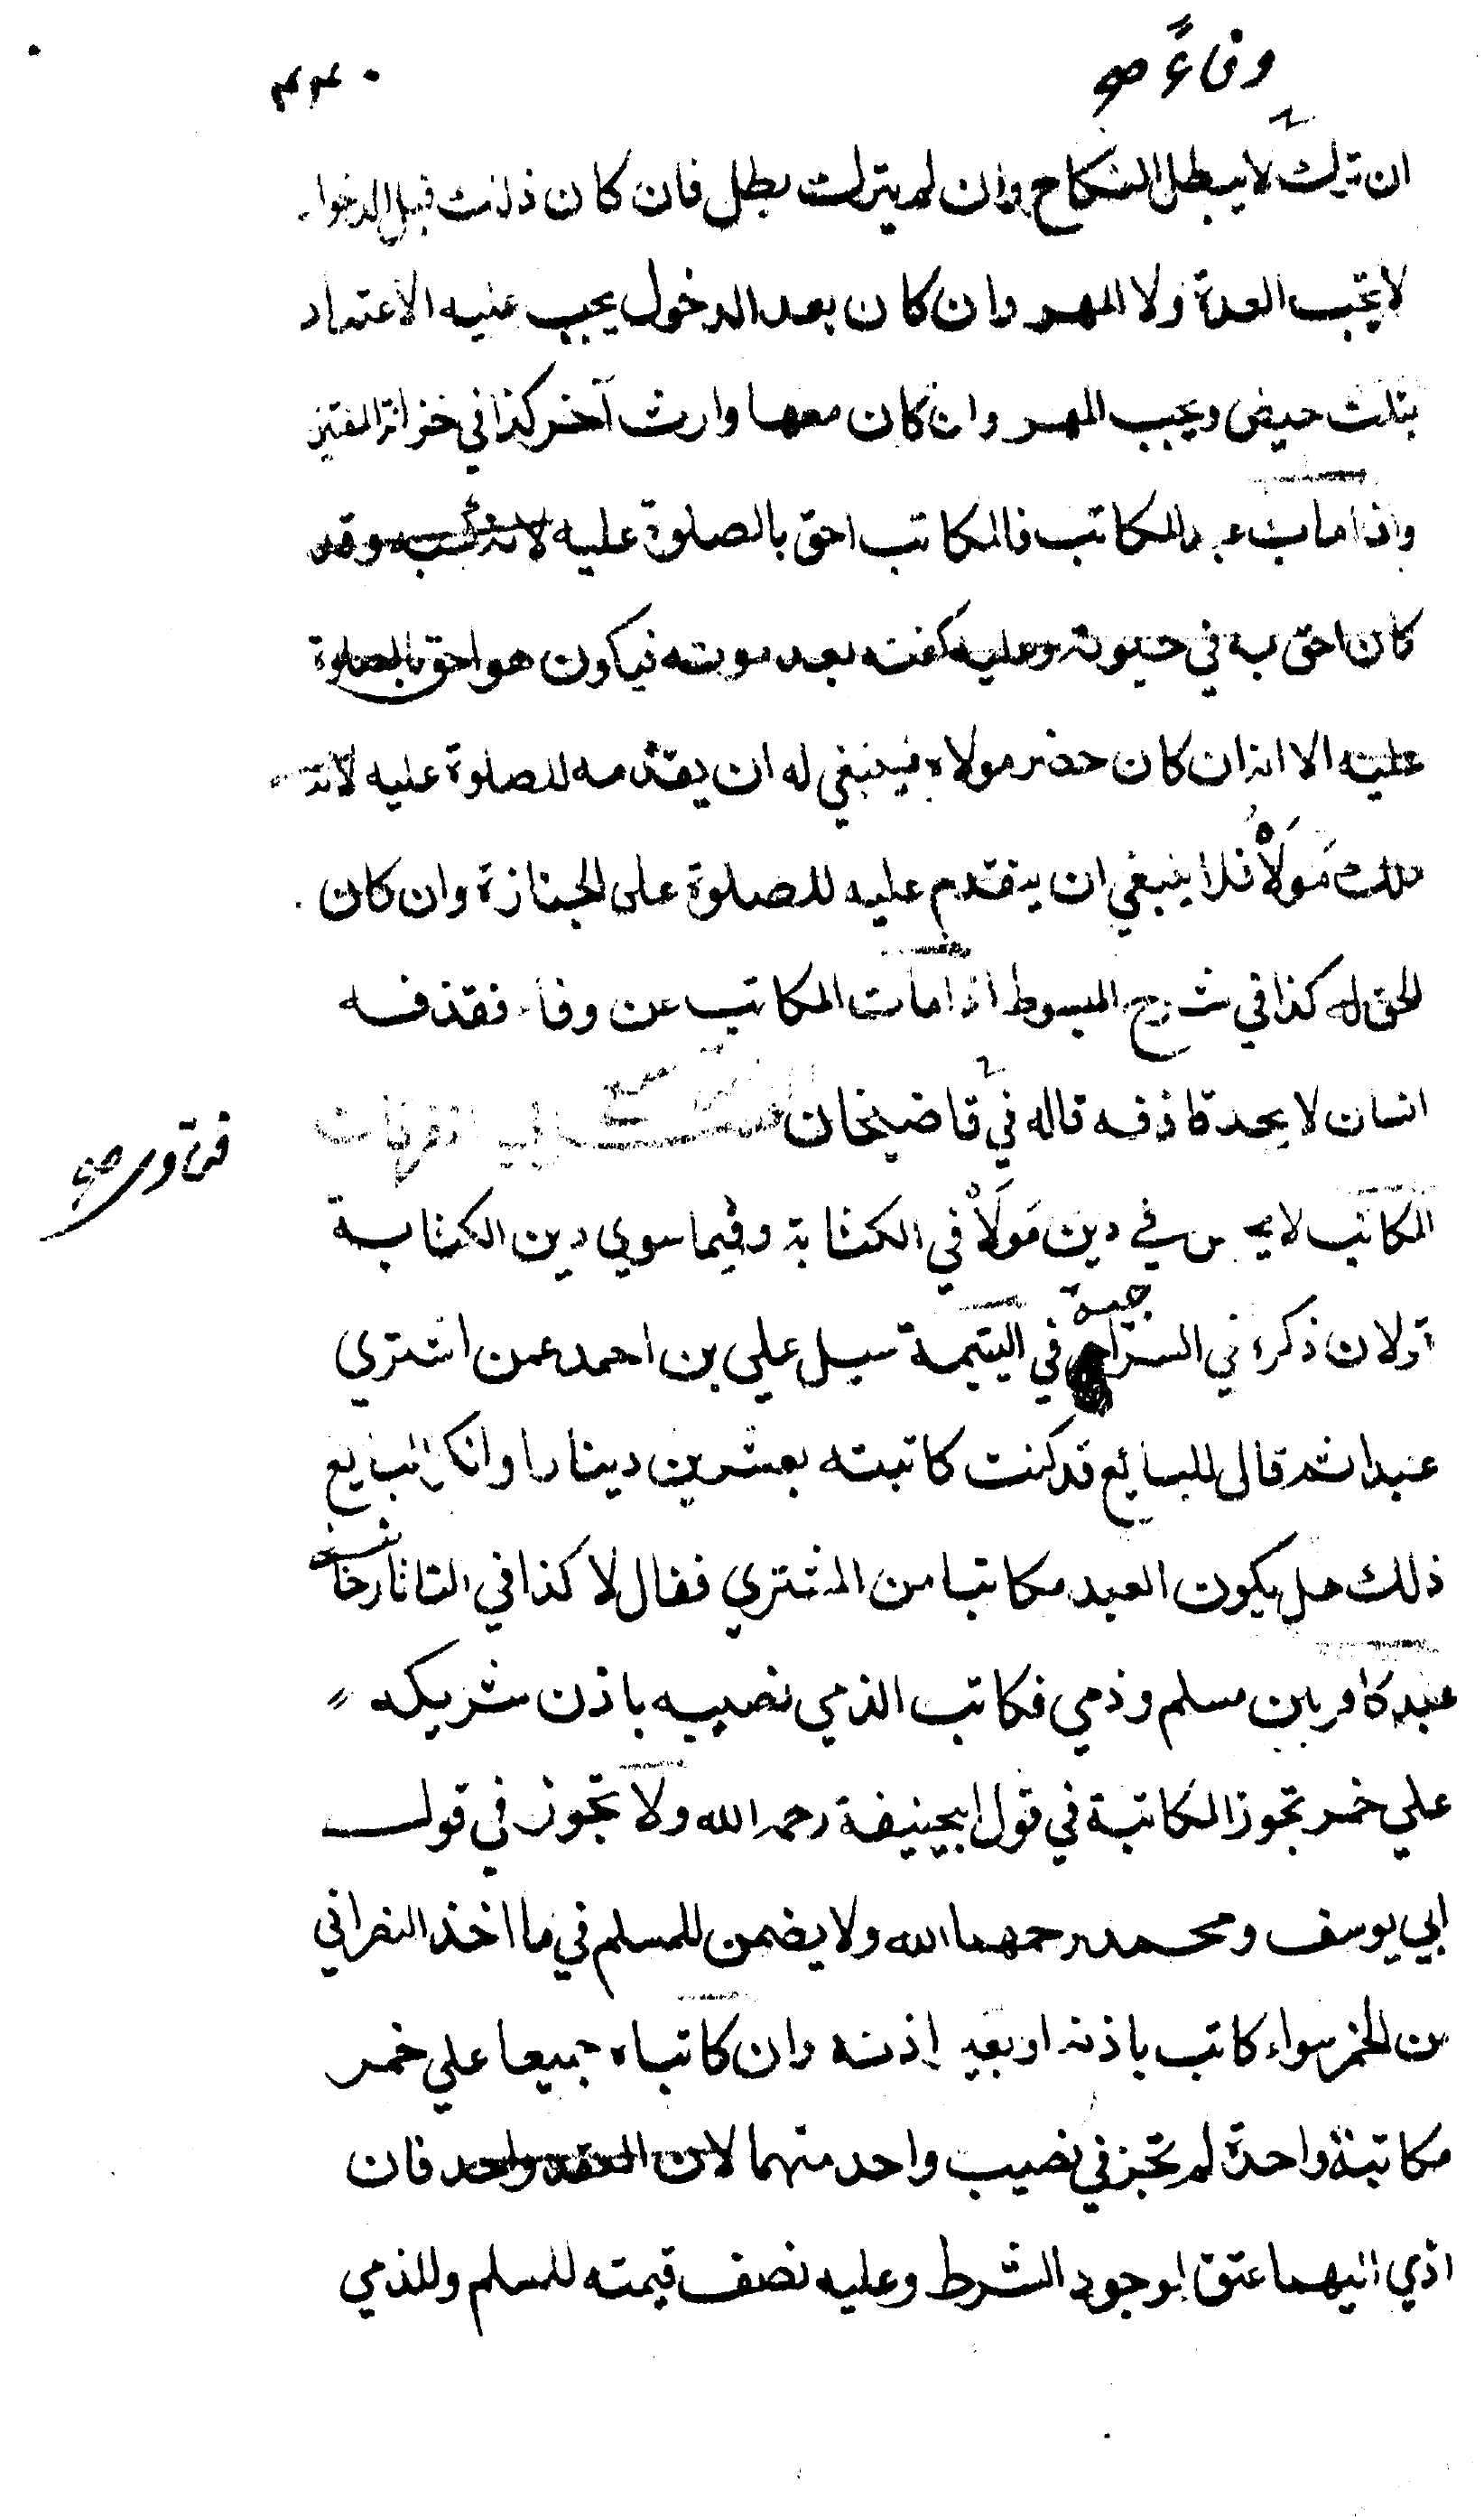 وفاءً صح
ان ترك لا يبطل النكاح وان لم يترك بطل فان كان ذلك قبل الدخول
لا تجب العدة ولا المهر وان كان بعد الدخول يجب عليه الاعتداد
بثلث حيض ويجب المهر وان كان معها وارث آخر كذا في خزانة المفتين
واذا مات عبد المكاتب فالمكاتب احق بالصلوة عليه لانه كسبه وقد
كان احق به في حيوته وعليه كفنه بعد موته فيكون هو احق بالصلوة
عليه الا انه ان كان حضر مولاه فينبغي له ان يقدمه للصلوة عليه لانه
ملك مَولَاهُ فلا ينبغي ان يتقدم عليه للصلوة على الجنازة وان كان
الحق له كذا في شرح المبسوط اذا مات المكاتب عن وفاء فقذفه
انسان لا يحد قاذفه قاله في قاضيخان
فتاوى صح
المكاتب لا يحبس في دين مَولَاهْ في الكتابة وفيما سوي دين الكتابة
قولان ذكره في السراجيه في اليتيمة سيل علي بن احمد عمن اشتري
عبدا ثم قال للبايع قد كنت كاتبته بعشرين دينارا وانكر البايع
ذلك هل يكون العبد مكاتبا من المشتري فقال لا كذا في التاتارخانيه
عبد كافر بين مسلم وذمي فكاتب الذمي نصيبه باذن شريكه
علي خمر تجوز المكاتبة في قول ابيحنيفة رحمه الله ولا تجوز في قول
ابي يوسف ومحمد رحمهما الله ولا يضمن للمسلم في ما اخذ النصراني
من الخمر سواء كاتب باذنه او بغير اذنه وان كاتباه جميعا علي خمر
مكاتبة واحدة لم تجز في نصيب واحد منهما لان العقد واحد فان
ادي اليهما عتق لوجود الشرط وعليه نصف قيمته للمسلم وللذمي